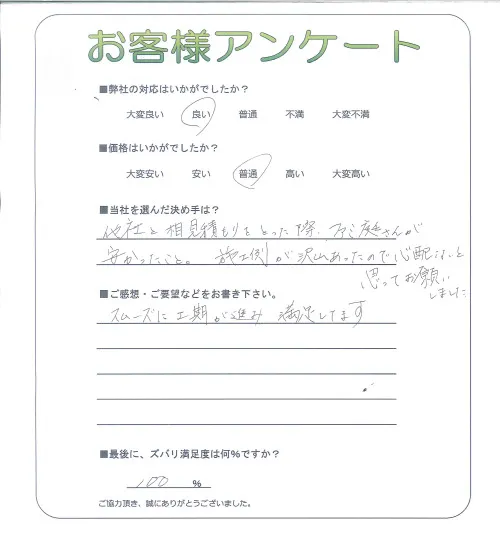 お客様アンケート
■弊社の対応はいかがでしたか？
大変良い 良い 普通 不満 大変不満
■価格はいかがでしたか？
大変安い 安い 普通 高い 大変高い
■当社を選んだ決め手は？
他社と相見積もりをとった際、ファミ庭さんが
安かったこと。 施工例が沢山あったので心配ないと
思ってお願い
しました
■ご感想・ご要望などをお書き下さい。
スムーズに工期が進み 満足してます
■最後に、ズバリ満足度は何％ですか？
100 %
ご協力頂き、誠にありがとうございました。